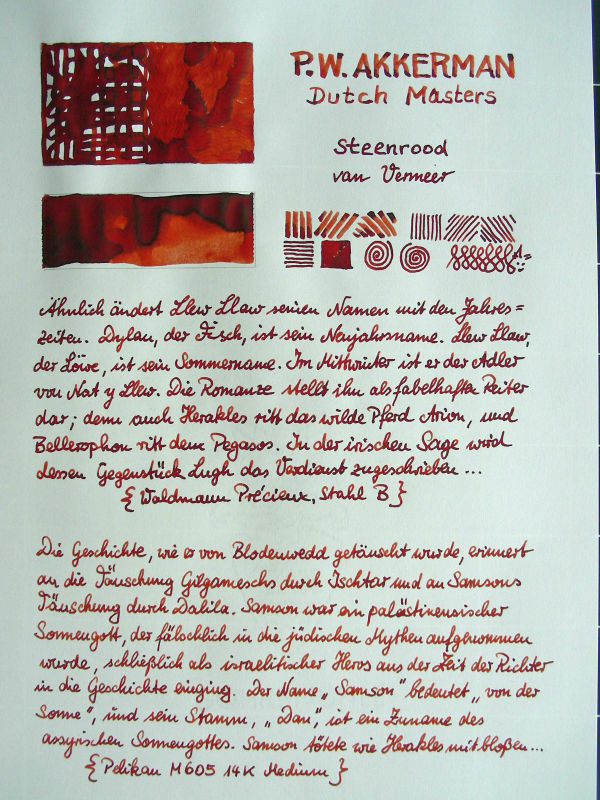 P.W. AKKERMAN
Dutch Masters
Steenrood
van Vermeer
Ähnlich ändert Llew Llaw seinen Namen mit den Jahres=
zeiten. Dylan, der Fisch, ist sein Neujahrsname. Llew Llaw,
der Löwe, ist sein Sommername. Im Mittwinter ist er der Adler
von Nat y Llew. Die Romanze stellt ihn als fabelhaften Reiter
dar; denn auch Herakles ritt das wilde Pferd Arion, und
Bellerophon ritt dem Pegasos. In der irischen Sage wird
dessen Gegenstück Lugh das Verdienst zugeschrieben ...
{ Waldmann Précieux, Stahl B }
Die Geschichte, wie er von Blodenwedd getäuscht wurde, erinnert
an die Täuschung Gilgameschs durch Ischtar und an Samsons
Täuschung durch Dalila. Samson war ein palästinensischer
Sonnengott, der fälschlich in die jüdischen Mythen aufgenommen
wurde, schließlich als israelitischer Heros aus der Zeit der Richter
in die Geschichte einging. Der Name „Samson" bedeutet „von der
Sonne", und sein Stamm, „Dan", ist ein Zuname des
assyrischen Sonnengottes. Samson tötete wie Herakles mit bloßen...
{ Pelikan M605 14K Medium }